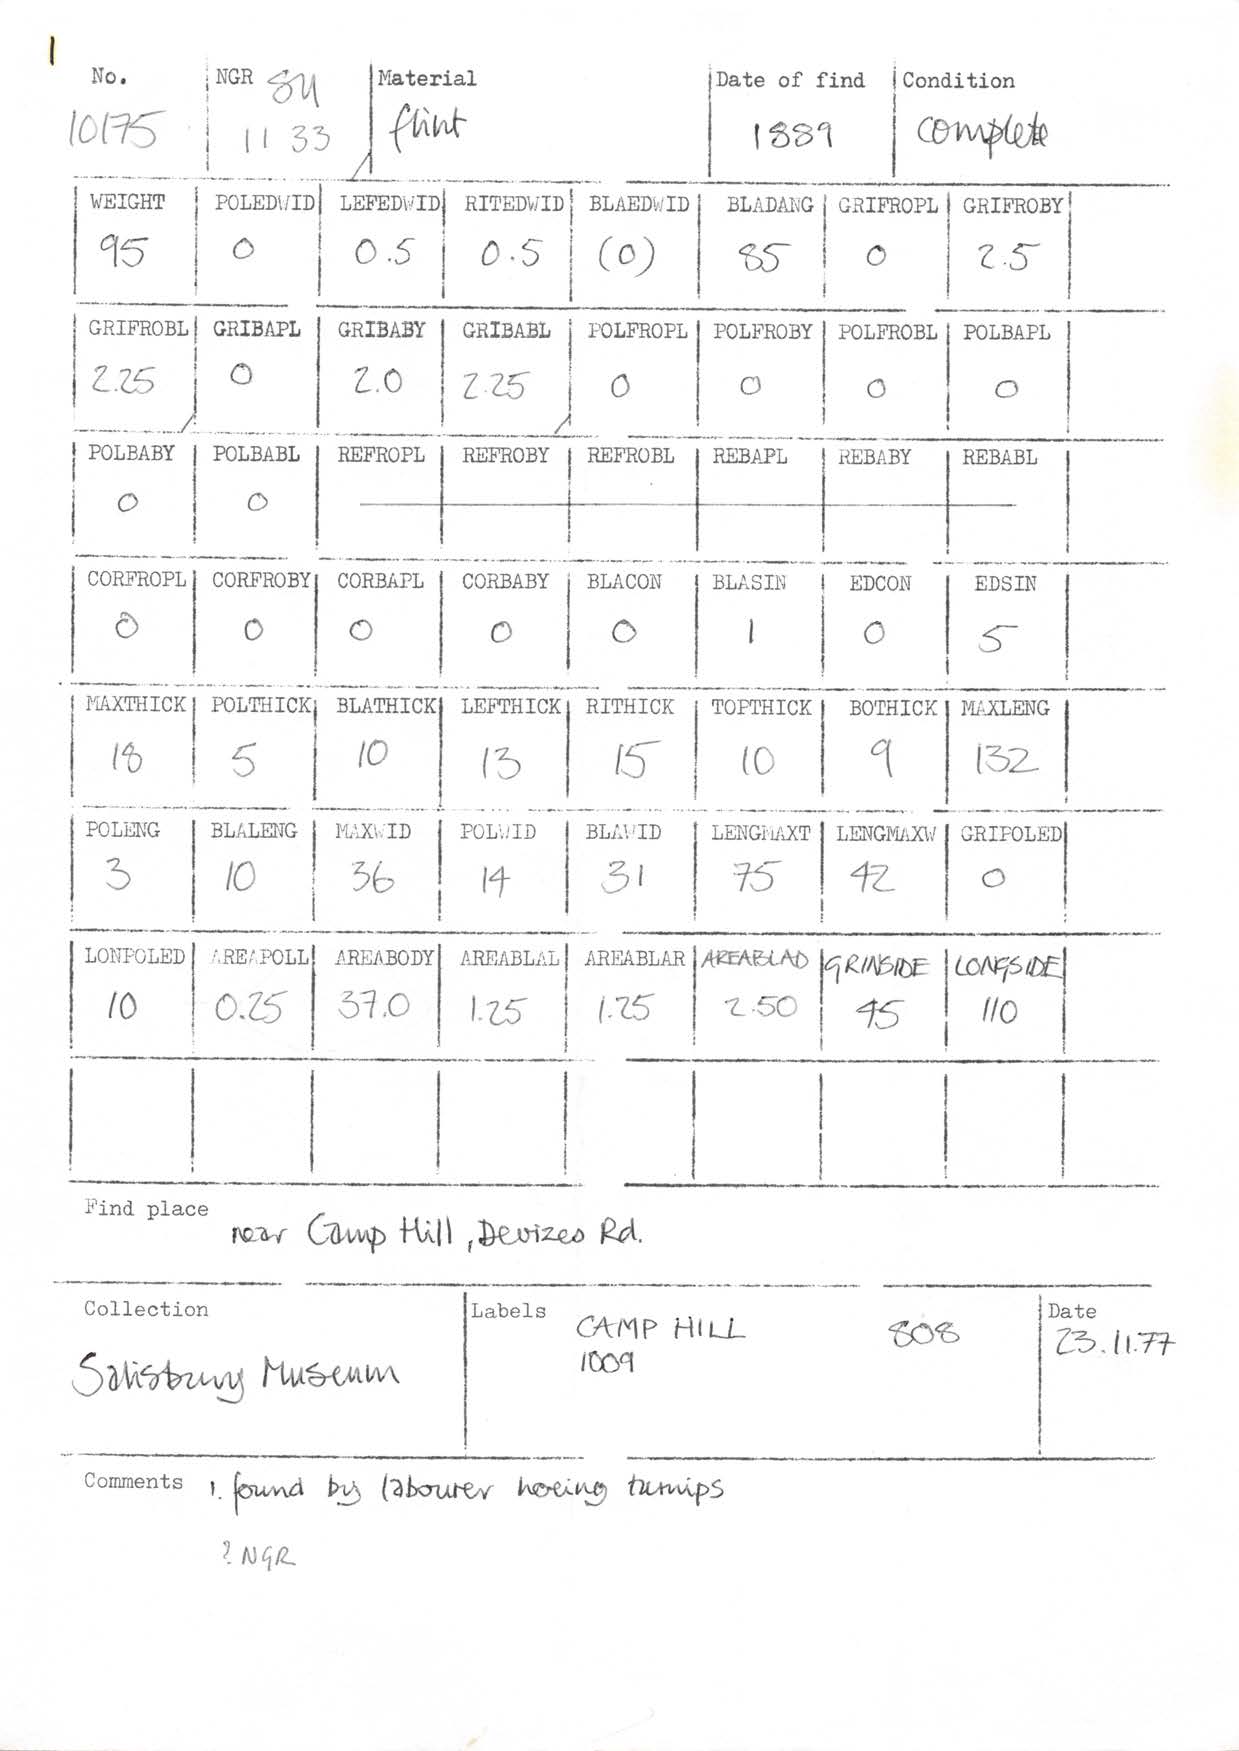 1
No. NGR SU Material Date of find Condition
10175 11 33 flint 1889 complete
WEIGHT POLEDWID LEFEDWID RITEDWID BLAEDWID BLADANG GRIFROPL GRIFROBY
95 0 0.5 0.5 (0) 85 0 2.5
GRIFROBL GRIBAPL GRIBABY GRIBABL POLFROPL POLFROBY POLFROBL POLBAPL
2.25 0 2.0 2.25 0 0 0 0
POLBABY POLBABL REFROPL REFROBY REFROBL REBAPL REBABY REBABL
0 0
CORFROPL CORFROBY CORBAPL CORBABY BLACON BLASIN EDCON EDSIN
0 0 0 0 0 1 0 5
MAXTHICK POLTHICK BLATHICK LEFTHICK RITHICK TOPTHICK BOTHICK MAXLENG
18 5 10 13 15 10 9 132
POLENG BLALENG MAXWID POLWID BLAWID LENGMAXT LENGMAXW GRIPOLED
3 10 36 14 31 75 42 0
LONPOLED AREAPOLL AREABODY AREABLAL AREABLAR AREABLAD GRINSIDE LONGSIDE
10 0.25 37.0 1.25 1.25 2.50 45 110
Find place
near Camp Hill, Devizes Rd.
Collection Labels CAMP HILL 808 Date
Salisbury Museum 1009 23.11.77
Comments 1. found by labourer hoeing turnips
? NGR